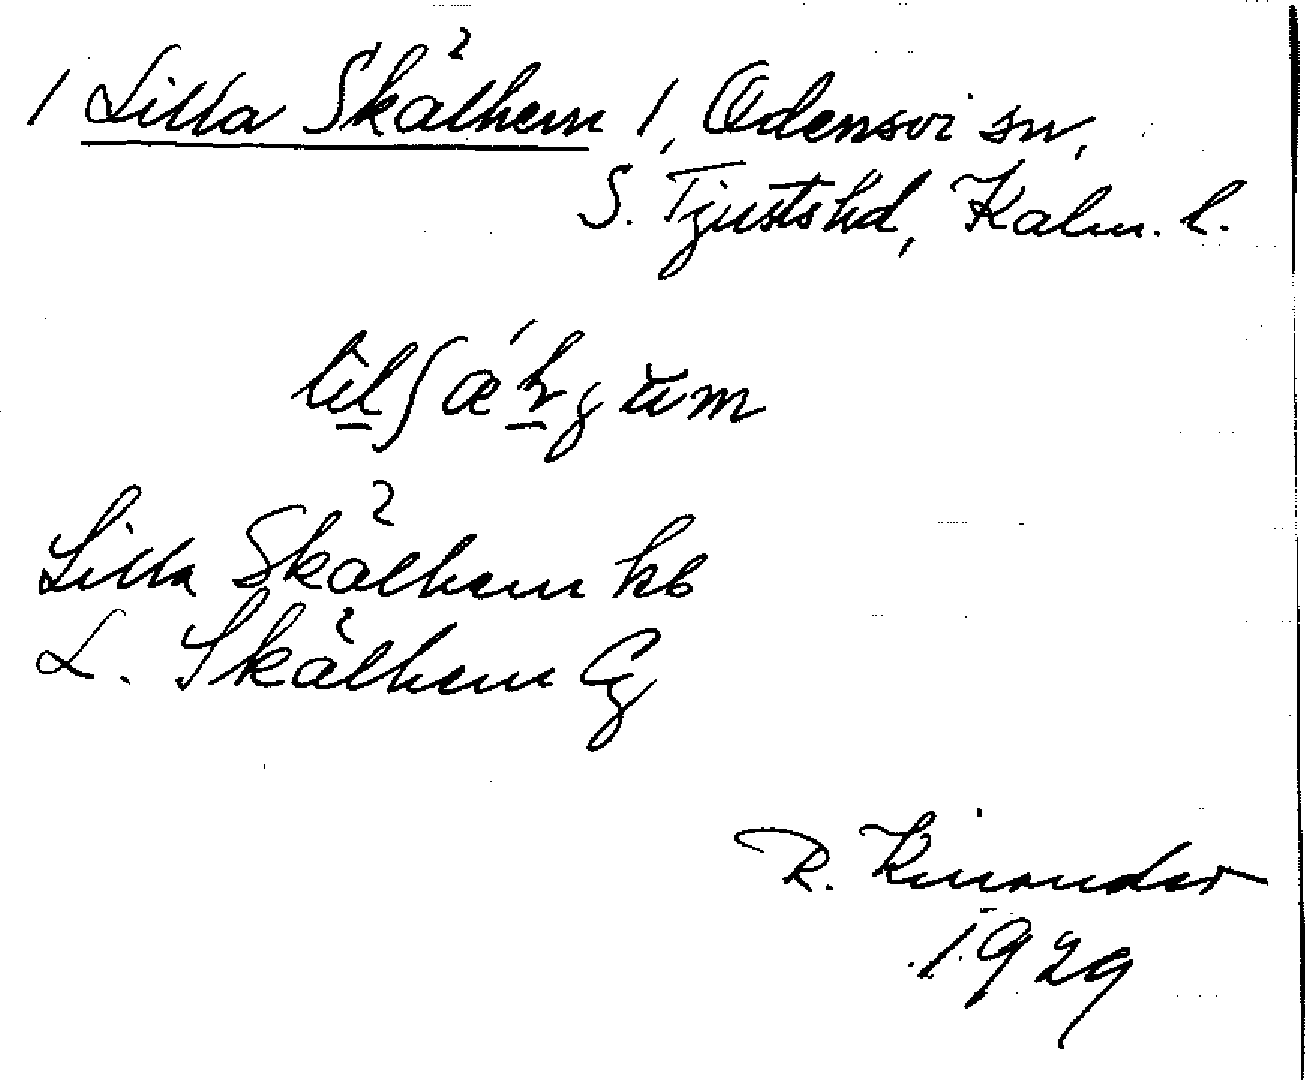 / Lilla Skålhem /, Odensvi sn,
S. Tjusts hd, Kalm. l.
Lilla Skålhem kb
L. Skålhem Cg
R. Kinander
1929